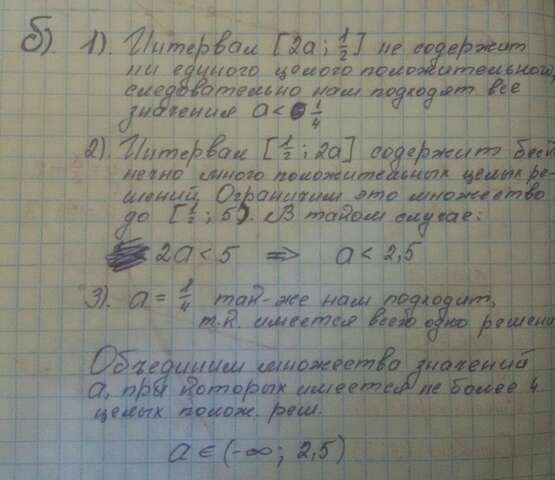 б) 1). Интервал [2a; 1/2] не содержит
ни единого целого положительного,
следовательно нам подходят все
значения a < 1/4
2). Интервал [1/2; 2a] содержит беск
нечно много положительных целых ре-
шений. Ограничим это множество
до [1/2; 5). В таком случае:
2a < 5 => a < 2,5
3). a = 1/4 так-же нам подходит,
т.к. имеется всего одно решени
Объединим множества значений
a, при которых имеется не более 4
целых полож. реш.
a ∈ (-∞; 2,5)